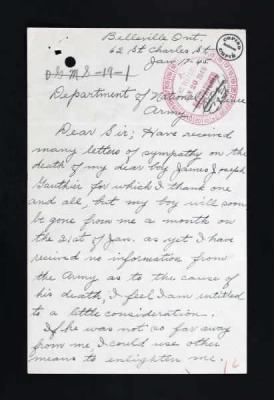 Belleville Ont.
62 St Charles St.
Jan 17-45
Department of National Defence
Army.
Dear Sir; Have received
many letters of sympathy on the
death of my dear boy James Joseph
Gauthier for which I thank one
and all, but my boy will soon
be gone from me a month on
the 21st of Jan. as yet I have
received no information from
the Army as to the cause of
his death, I feel I am entitled
to a little consideration.
If he was not so far away
from me I could use other
means to enlighten me.